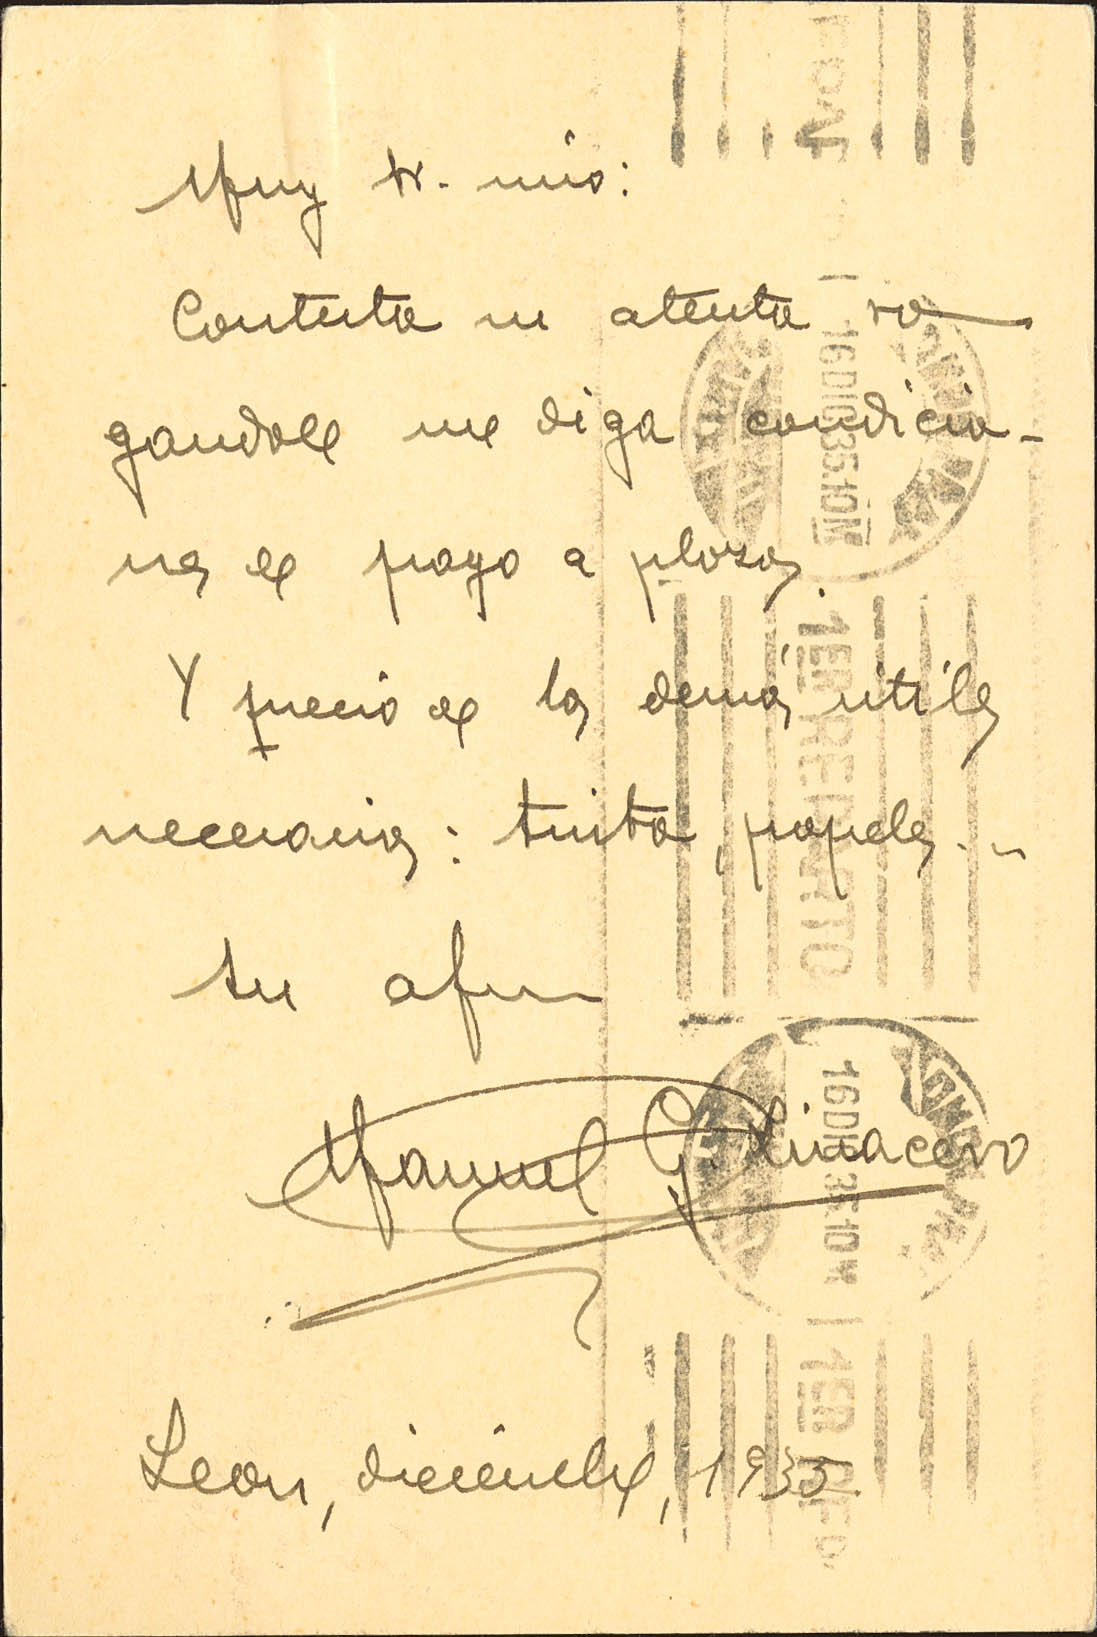 Muy Sr. mío:
Contesto su atenta ro-
gandole me diga condicio-
nes de pago a plazos.
Y precio de los demás útiles
necesarios: tinta, papeles...
Su afmo
Manuel G. Linacero
Leon, diciembre, 1935.
16 DIC 35.10M
1ER REPARTO
16 DIC 35.10M
1ER REP